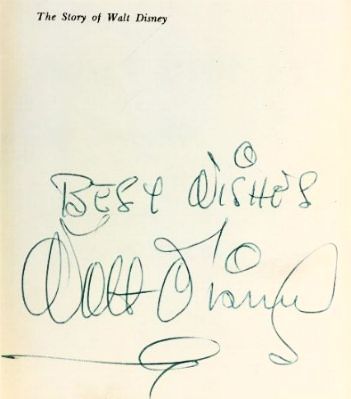 The Story of Walt Disney
BEST WISHES
Walt Disney